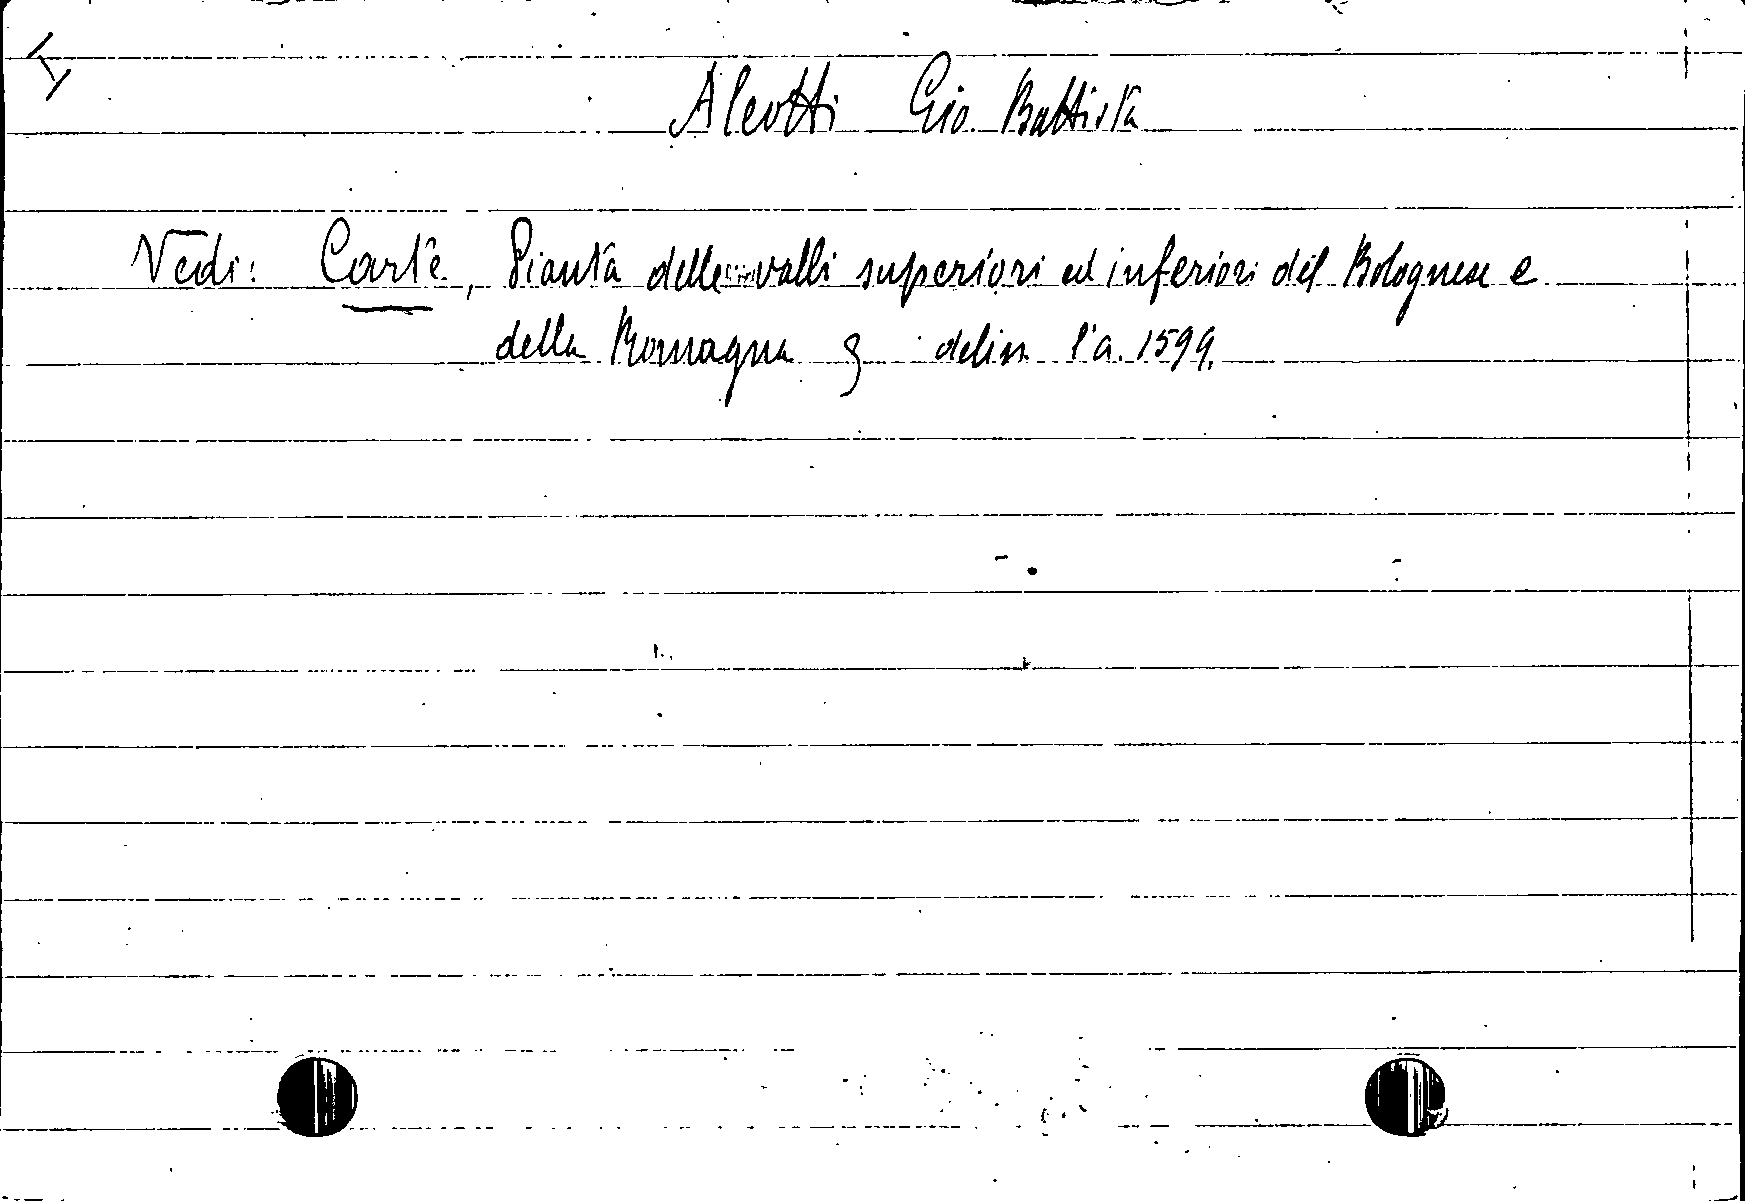 I
Aleotti Gio. Battista
Vedi: Carte, Pianta delle valli superiori ed inferiori del Bolognese e
della Romagna delin. l'a. 1599.